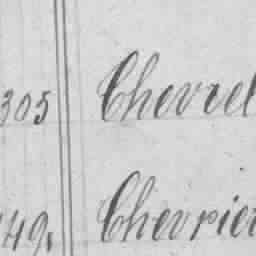 305 Chevrel
149. Chevrier